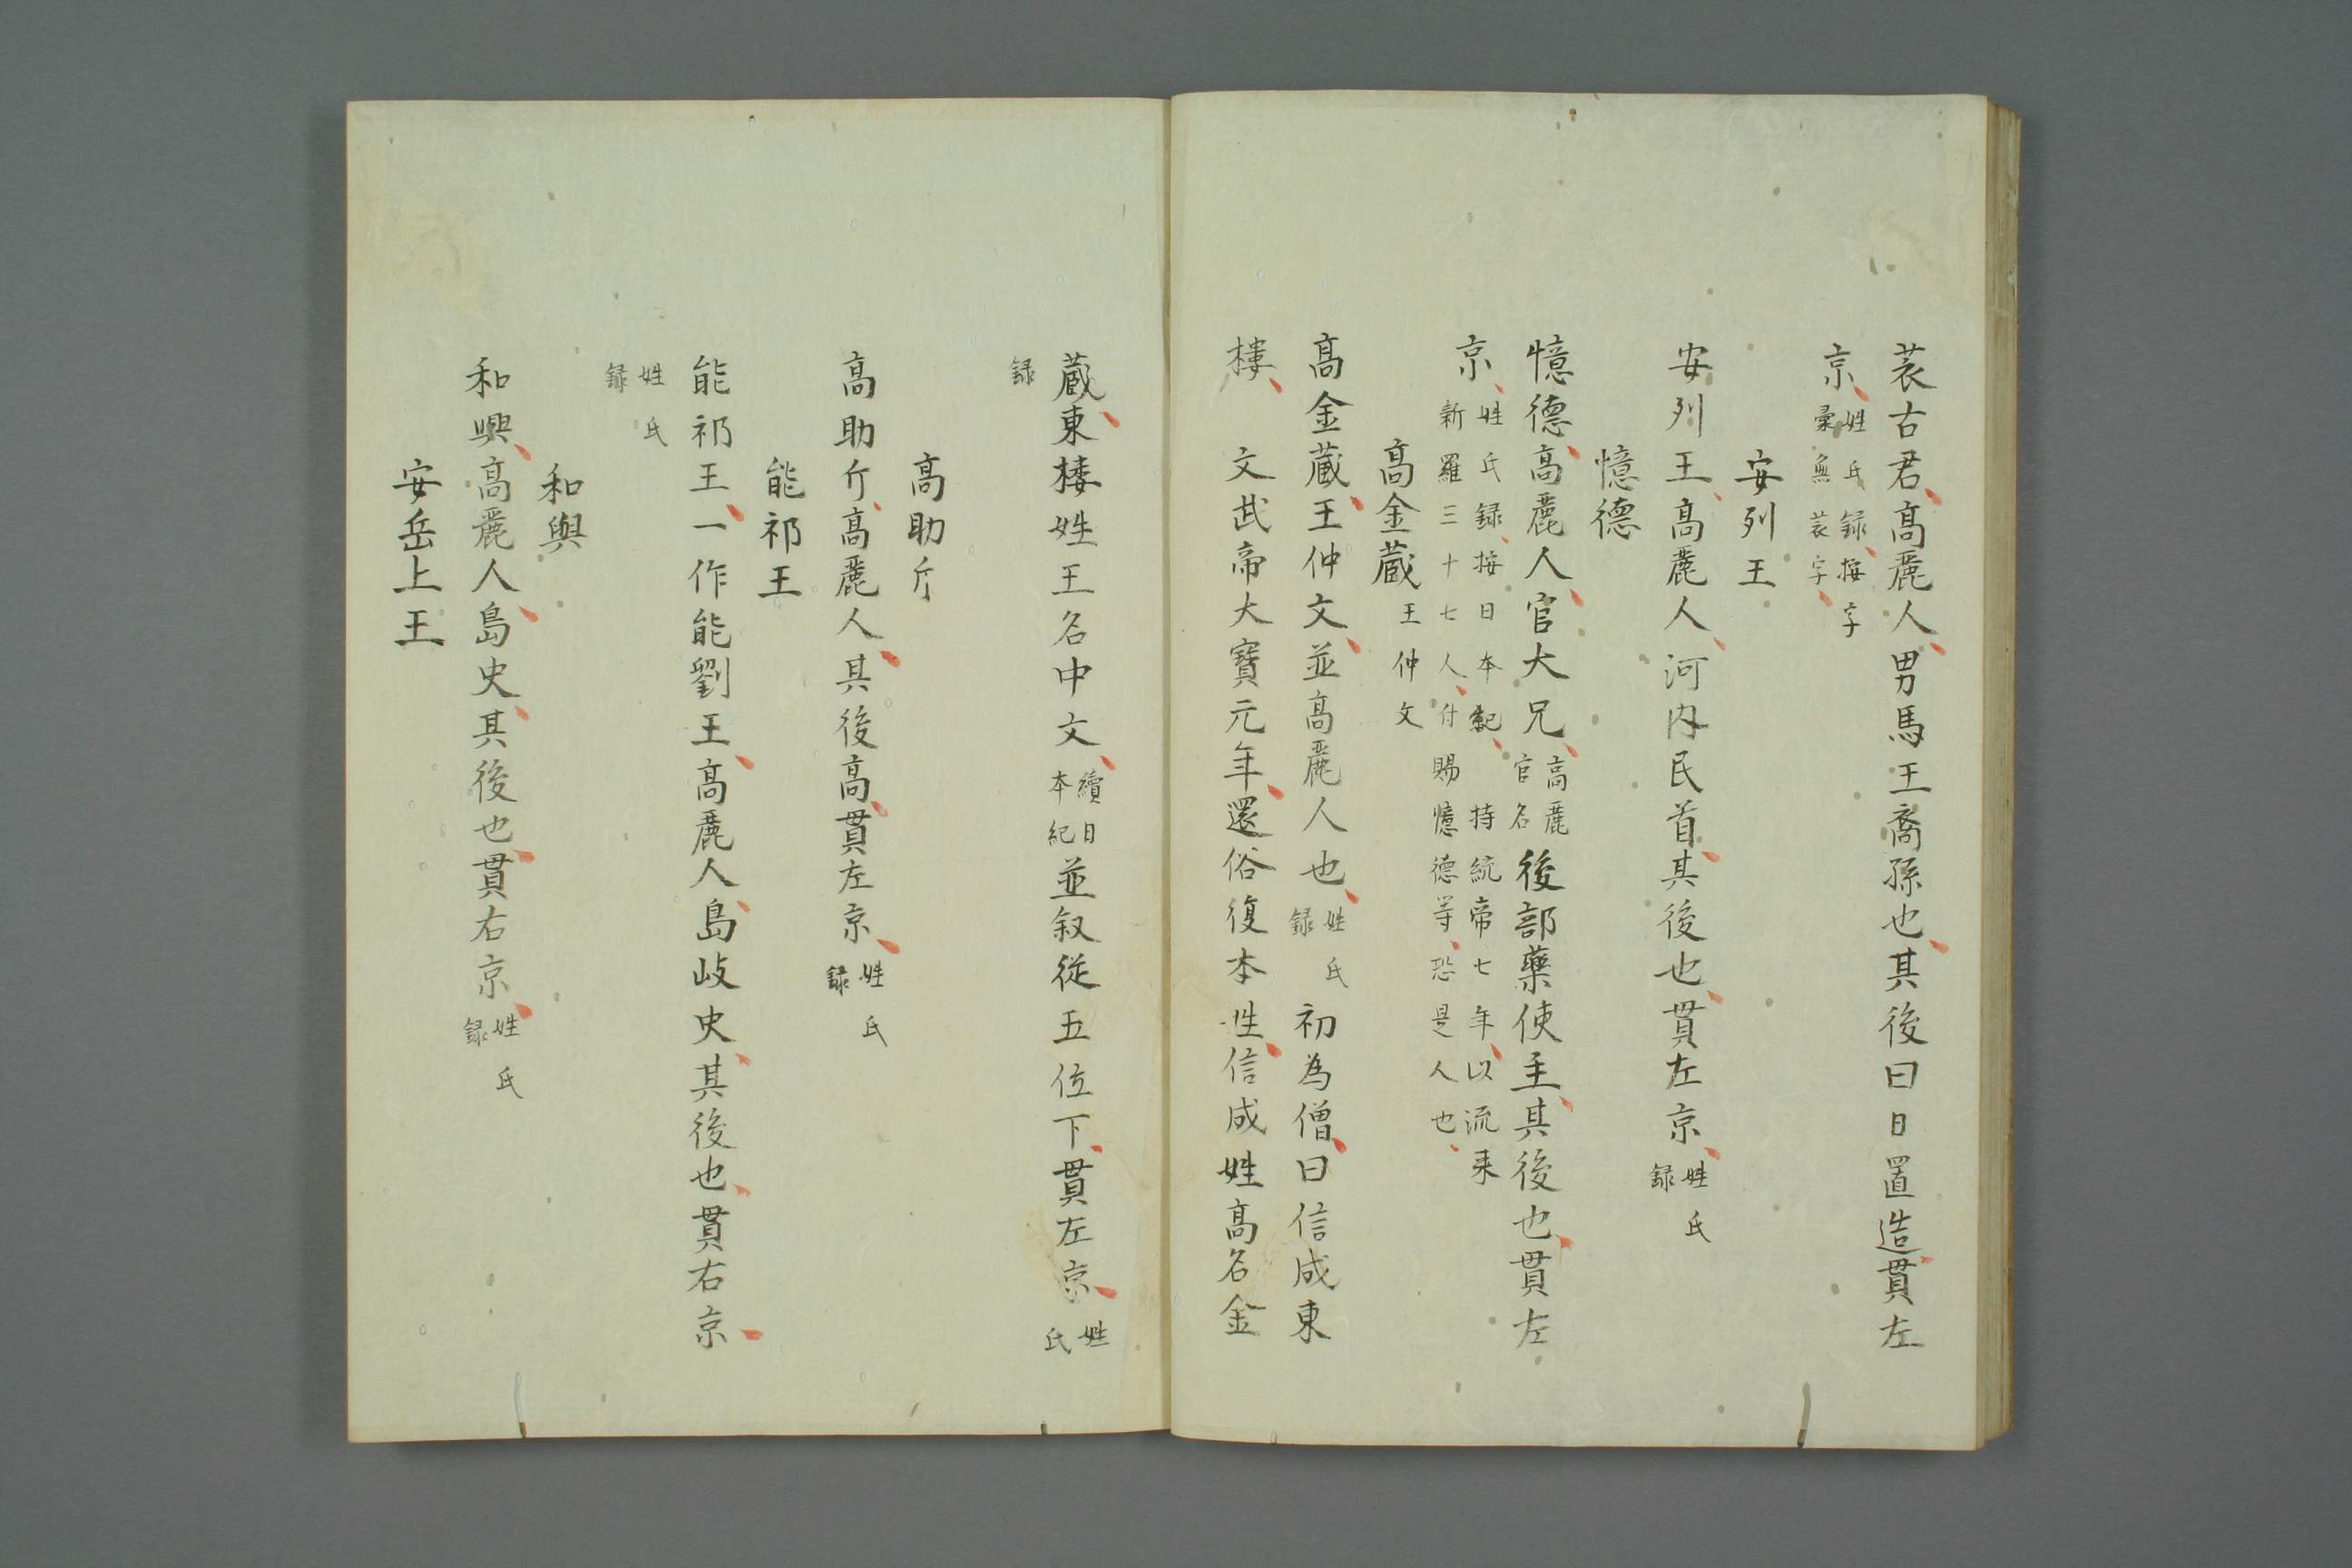 䒾古君高麗人男馬王裔孫也其後曰日置造貫左
京姓氏録按字彙無䒾字
安列王
安列王高麗人河内民首其後也貫左京姓氏録
憶德
憶德高麗人官大兄高麗官名後部藥使主其後也貫左
京姓氏録按日本紀持統帝七年以流来新羅三十七人付賜憶德等恐是人也
高金蔵王仲文
高金蔵王仲文並高麗人也姓氏録初為僧曰信成東
樓文武帝大寶元年還俗復本姓信成姓高名金
蔵東樓姓王名中文續日本紀並叙従五位下貫左京姓氏
録
高助斤
高助斤高麗人其後高貫左京姓氏録
能祁王
能祁王一作能劉王高麗人島岐史其後也貫右京
姓氏録
和興
和興高麗人島史其後也貫右京姓氏録
安岳上王